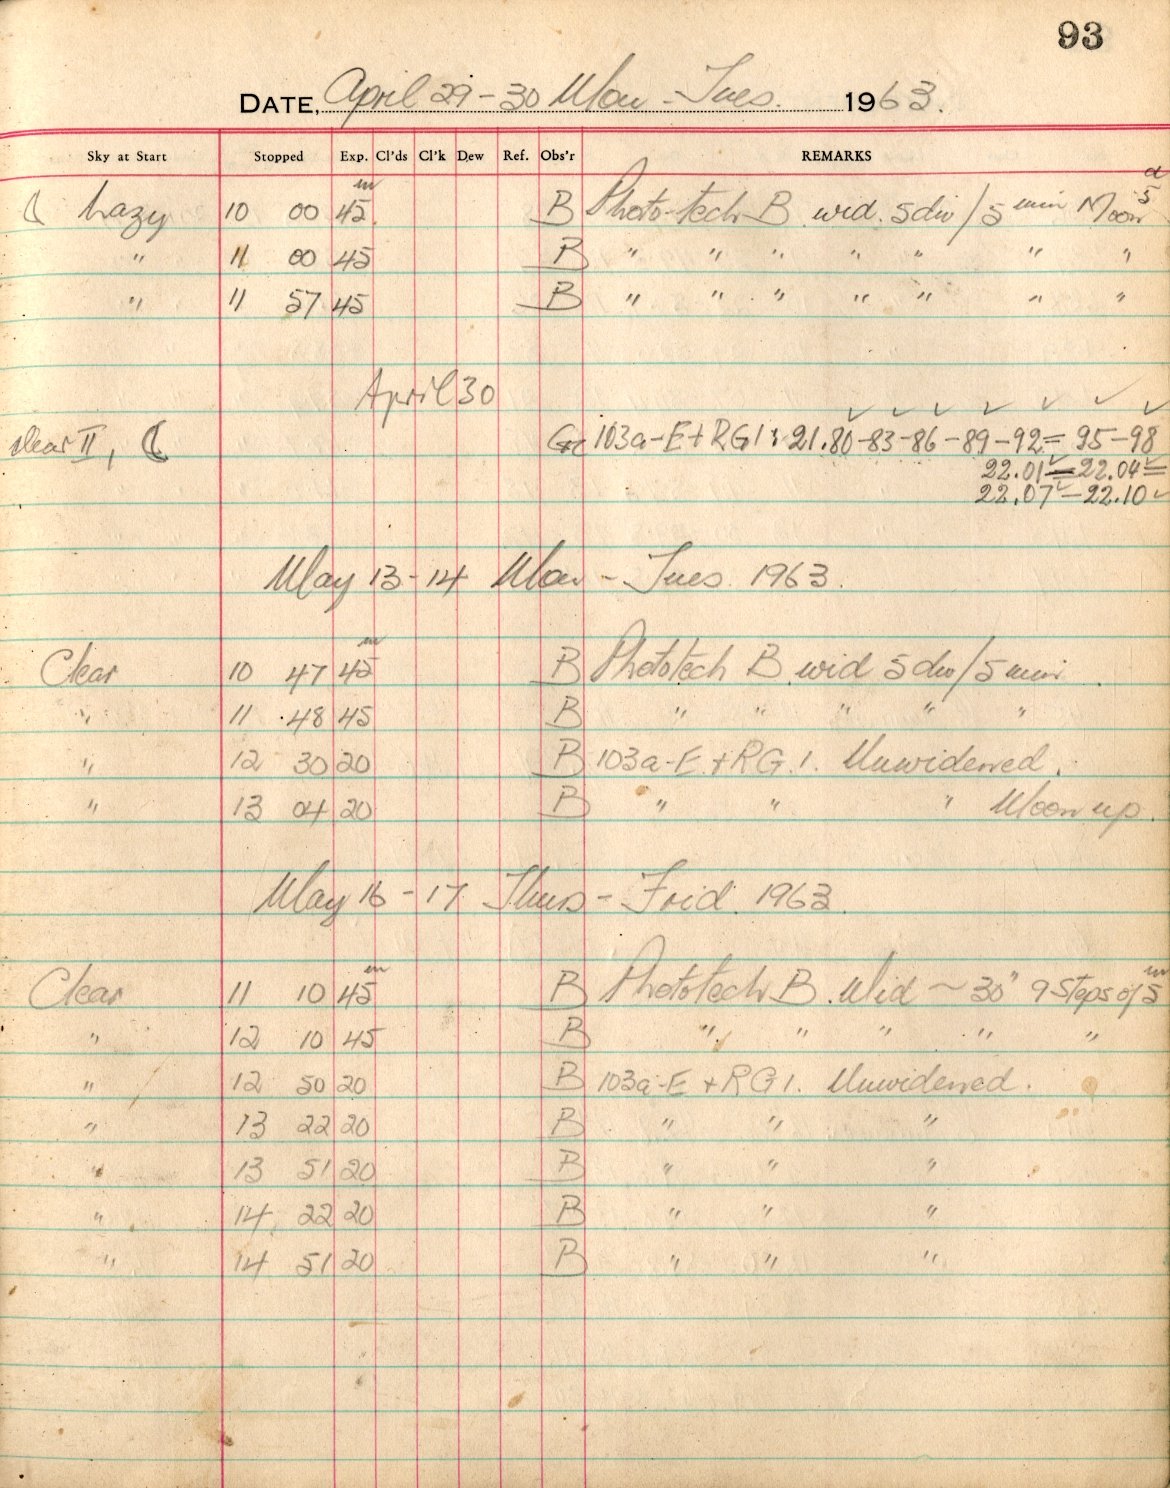 93
DATE, April 29-30 Mon - Tues. 1963.
Sky at Start Stopped Exp. Cl'ds Cl'k Dew Ref. Obs'r REMARKS
☾ hazy 10 00 45 m B Photo-tech B wid. 5 div/5 min Moon 5 d
" 11 00 45 B " " " " " " "
" 11 57 45 B " " " " " " "
April 30
clear II, ☾ 103a-E+RG1: 21.80-83-86-89-92= 95-98
22.01=22.04=
22.07-22.10
May 13-14 Mon - Tues. 1963.
Clear 10 47 45 m B Phototech B wid 5 div/5 min
" 11 48 45 B " " " " "
" 12 30 20 B 103a-E.+RG.1. Unwidened.
" 13 04 20 B " " " Moon up.
May 16-17 Thurs - Frid. 1963.
Clear 11 10 45 m B Phototech B. Wid ~ 30" 9 steps of 5 m
" 12 10 45 B " " " " "
" 12 50 20 B 103a-E +RG1. Unwidened.
" 13 22 20 B " " "
" 13 51 20 B " " "
" 14 22 20 B " " "
" 14 51 20 B " " "